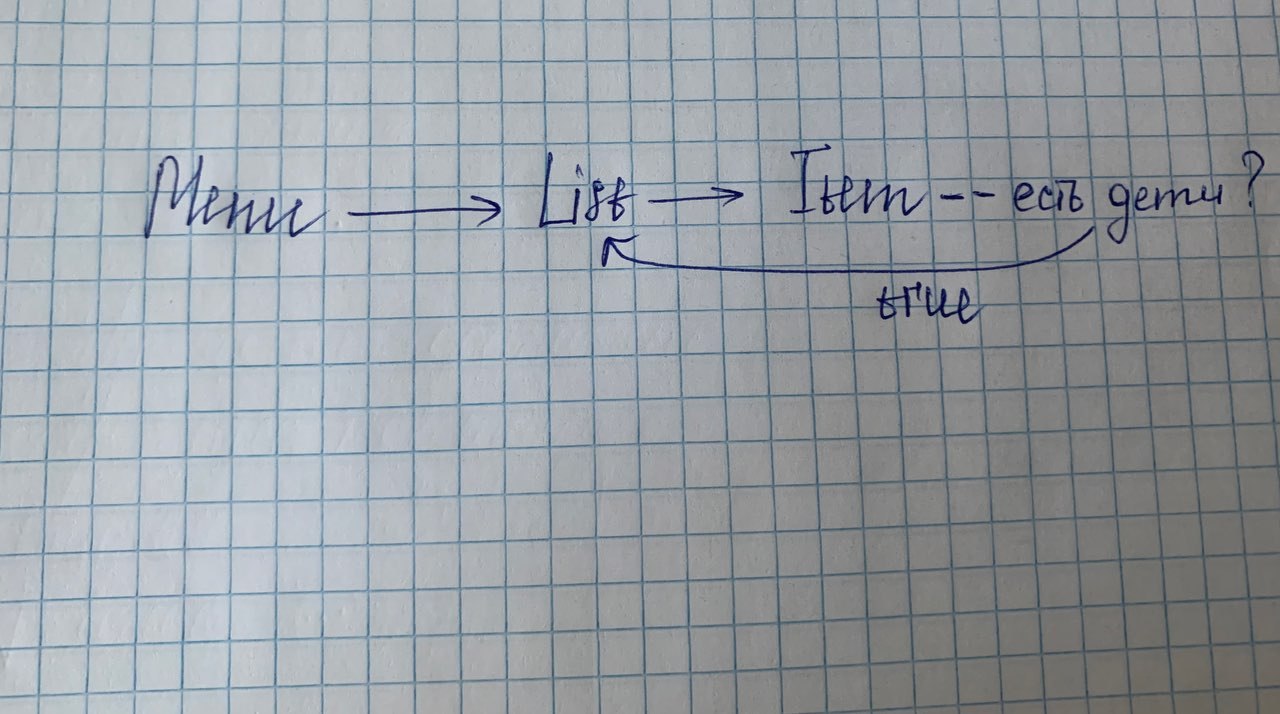 Menu → List → Item -- есть дети?
true